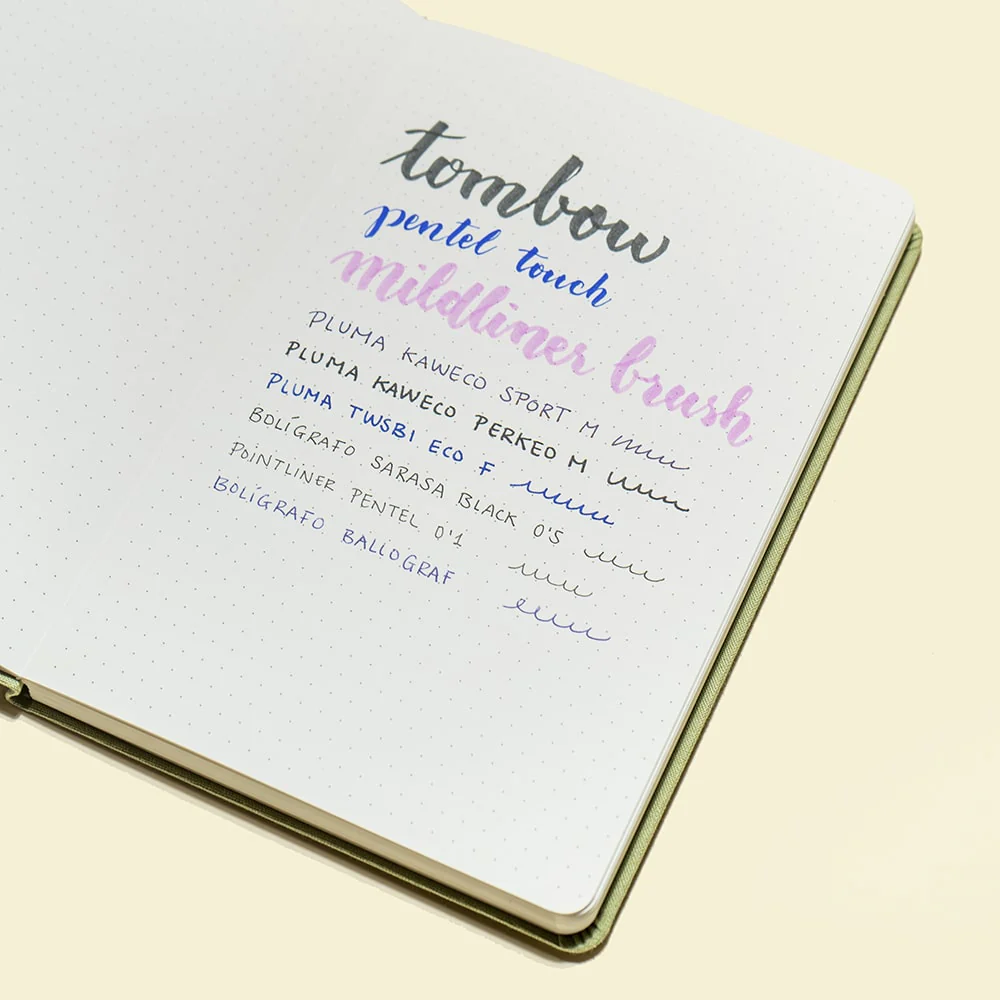 tombow
pentel touch
mildliner brush
PLUMA KAWECO SPORT M
PLUMA KAWECO PERKEO M
PLUMA TWSBI ECO F
BOLÍGRAFO SARASA BLACK 0'5
POINTLINER PENTEL 0'1
BOLÍGRAFO BALLOGRAF